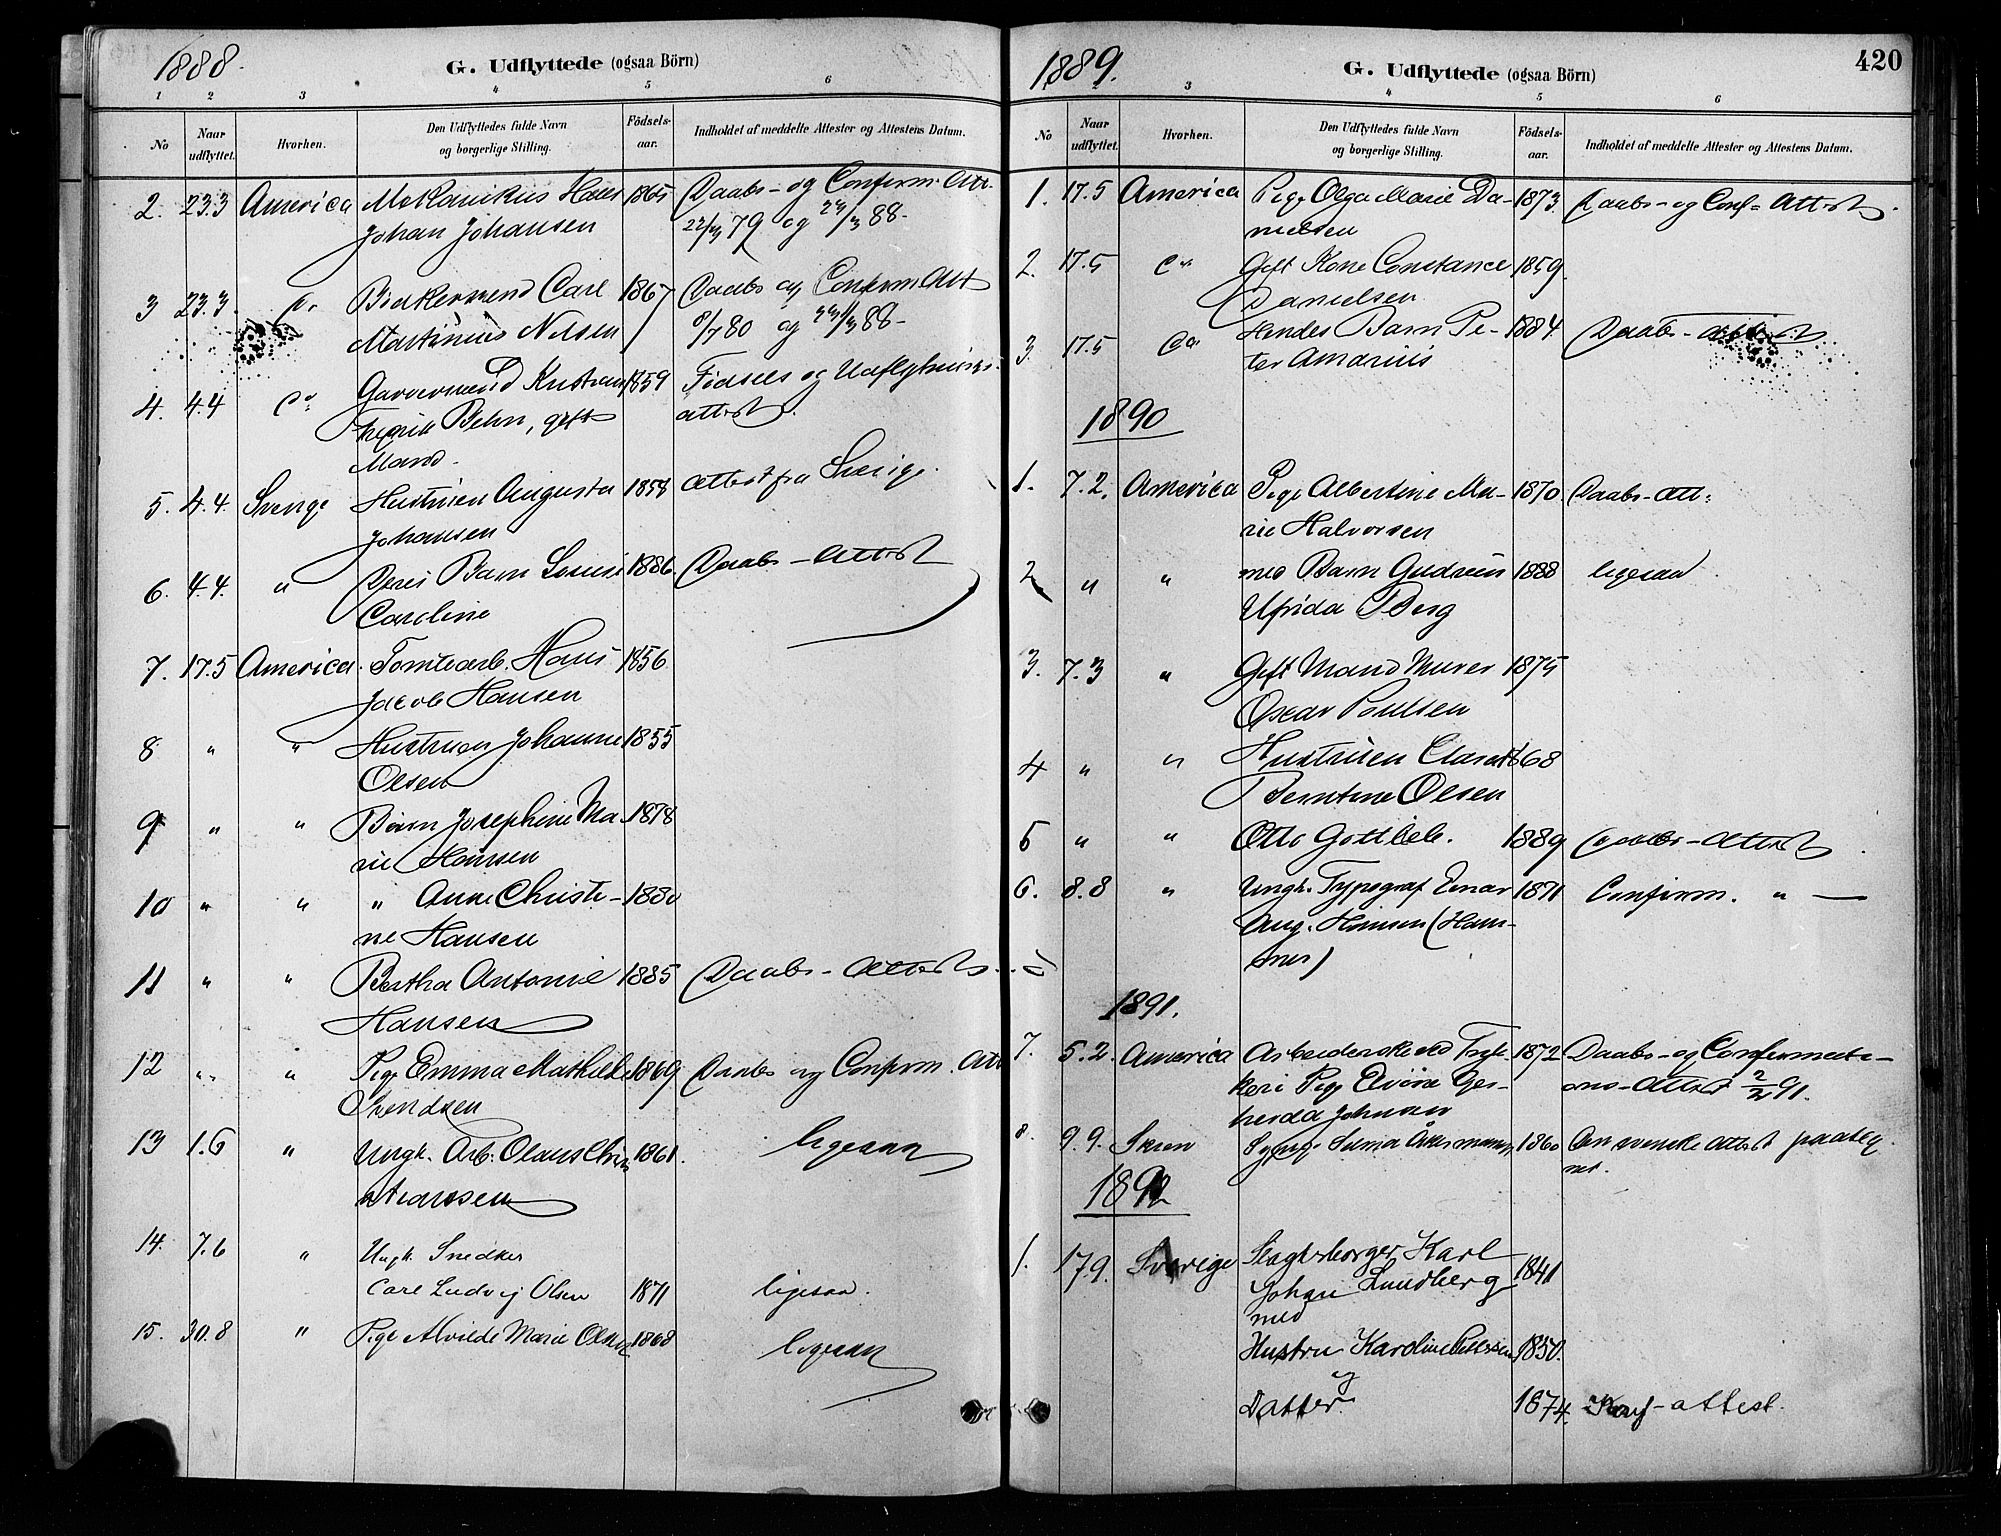 1888.
G. Udflyttede (ogsaa Börn)
1 2 3 4 5 6
No
Naar udflyttet.
Hvorhen.
Den Udflyttedes fulde Navn og borgerlige Stilling.
Födsels-aar.
Indholdet af meddelte Attester og Attestens Datum.
2. 23.3 America Mekanikus Hans 1865 Daabs- og Confirm. Att.
Johan Johansen 79 og 88-
3 23.3 Carl 1867 Daabs og Confirm Att
Martinius Nilsen 80 og 88-
4. 4.4 Do Garversvend Kristian 1859 Fødsels og Udflytnings
Fredrik Behn, gift attest.
Mand.
5. 4.4. Sverige Hustruen Augusta 1858 Attest fra Sverige.
Johansen
6. 4.4. " Deres Barn Louise 1886 Daabs-Attest
Caroline
7. 17.5 America. Tomtearb. Hans 1856
Jacob Hansen
8 " " Hustruen Johanne 1855
Olsen
9 " " Børn Josephine Ma- 1878
rie Hansen
10 " " " Anne Christi- 1880
ne Hansen
11 " " Bertha Antonie 1885 Daabs-Attest
Hansen
12 " " Pige Emma Mathilde 1869 Daabs og Confirm. Att
Svendsen
13 1.6 " Ungk. Arb. Olaus Chri 1861. ligesaa
stianssen
14. 7.6 " Ungk. Snedker
Carl Ludvig Olsen 1871 ligesaa.
15. 30.8 " Pige Alvilde Marie Olsen 1868 ligesaa
1889.
G. Udflyttede (ogsaa Börn)
420
3 4 5 6
No
Naar udflyttet.
Hvorhen.
Den Udflyttedes fulde Navn og borgerlige Stilling.
Födsels-aar.
Indholdet af meddelte Attester og Attestens Datum.
1. 17.5 America Pige Olga Marie Da- 1873. Daabs- og Conf-Attest
nielsen
2. 17.5 Do Gift Kone Constance 1859.
Danielsen
3. 17.5 Do Hendes Barn Pe- 1884. Daabs-attest
ter Amarius
1890
1. 7.2. America Pige Albertine Ma- 1870. Daabs-Att:
rie Halvorsen
2 " " med Barn Gudrun 1888 ligesaa
Berg
3. 7.3 " Gift Mand Murer 1875
Oscar Poulsen
4 " " Hustruen Clara 1868
Berntine Olsen
5 " " Otto Gottlieb. 1889 Daabs-Attest
6. 8.8 " Ungk. Typograf Einar 1871 Confirm. " —
Aug. Hansen (Ham-
mer)
1891.
7. 5.2. America Arbeiderske ved Tryk- 1872 Daabs- og Confirmati-
keri Pige ons-Attest 2/2 91.
8. 9.9. Skien Selma 1860 Den svenske Attest paateg
net.
1892
1. 17.9. Sverige Karl
Johan Lundberg 1841
med
Hustru Karoline Petersen 1850.
og
Datter 1874. Konf-attest.